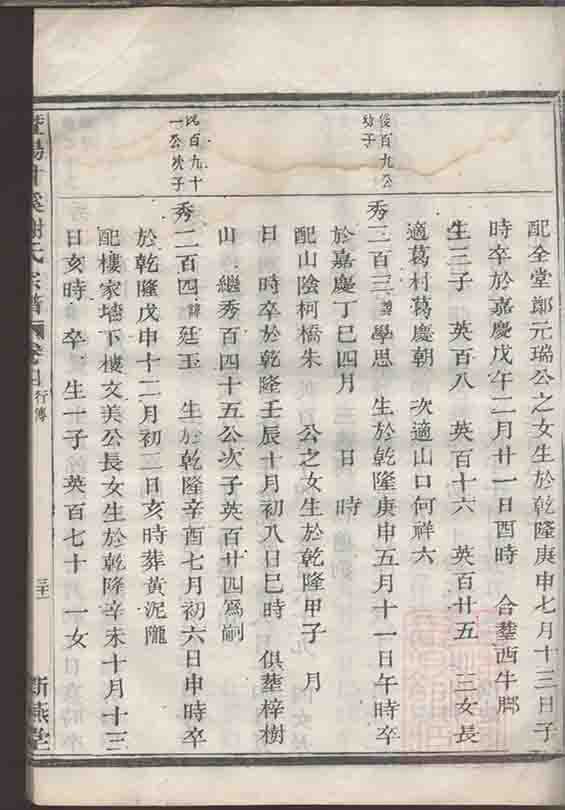 配全堂鄭元瑞公之女生於乾隆庚申七月十三日子
時卒於嘉慶戊午二月廿一日酉時 合塟西牛腳
生三子 英百八 英百十六 英百廿五 三女長
適葛村葛慶朝 次適山口何祥六
俊百九公
幼子
秀二百三諱學思 生於乾隆庚申五月十一日午時卒
於嘉慶丁巳四月 日 時
配山陰柯橋朱 公之女生於乾隆甲子 月
日 時卒於乾隆壬辰十月初八日巳時 俱塟梓樹
山 繼秀百四十五公次子英百廿四爲嗣
百九十
一公次子
秀二百四諱廷玉 生於乾隆辛酉七月初六日申時卒
於乾隆戊申十二月初二日亥時葬黃泥隴
配樓家墻下樓文美公長女生於乾隆辛未十月十三
日亥時 卒 生一子 英百七十 一女
暨陽 溪謝氏宗譜 行傳 新燕堂